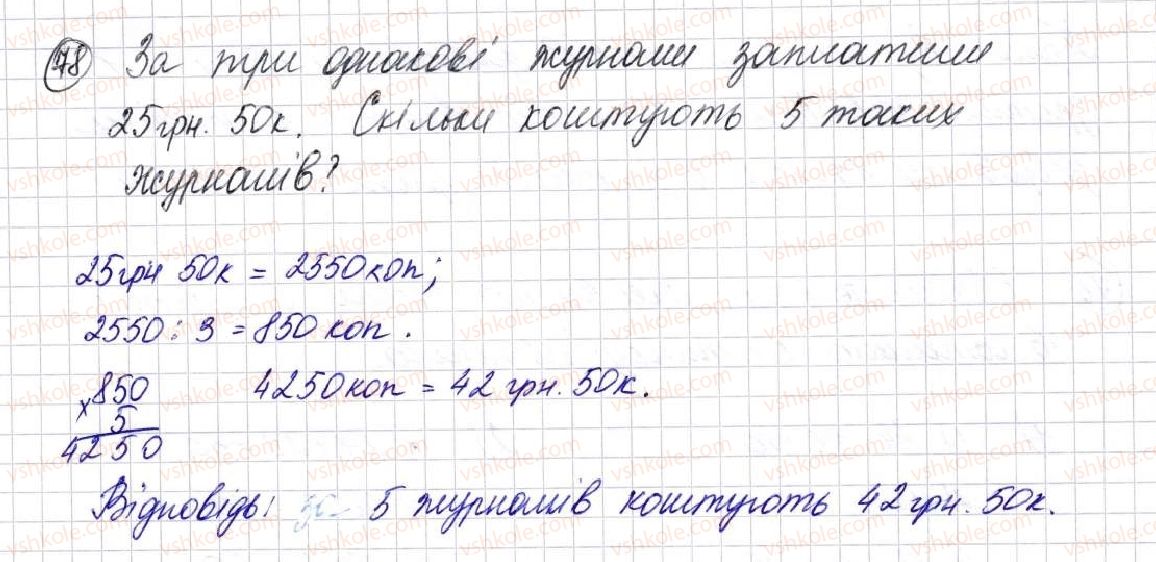 78 За три однакові журнали заплатили
25 грн. 50 к. Скільки коштують 5 таких
журналів?
25 грн 50 к = 2550 коп;
2550 : 3 = 850 коп.
850 4250 коп = 42 грн. 50 к.
x 5
4250
Відповідь: 5 журналів коштують 42 грн. 50 к.
vshkole.com